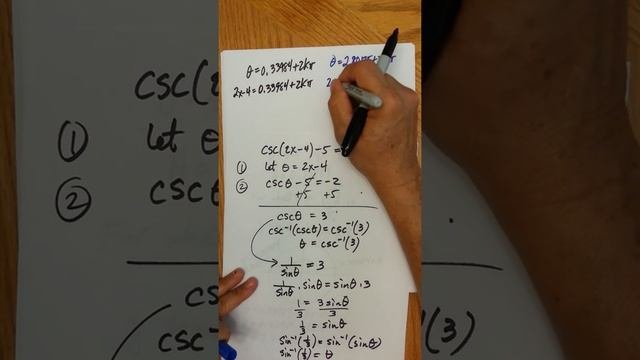 θ = 0.33984 + 2kπ
2x-4 = 0.33984 + 2kπ
csc(2x-4) - 5 =
① let θ = 2x-4
② cscθ - 5 = -2
+5 +5
cscθ = 3
csc⁻¹(cscθ) = csc⁻¹(3)
θ = csc⁻¹(3)
1/sinθ = 3
1/sinθ · sinθ = sinθ · 3
1/3 = 3sinθ/3
1/3 = sinθ
sin⁻¹(1/3) = sin⁻¹(sinθ)
sin⁻¹(1/3) = θ